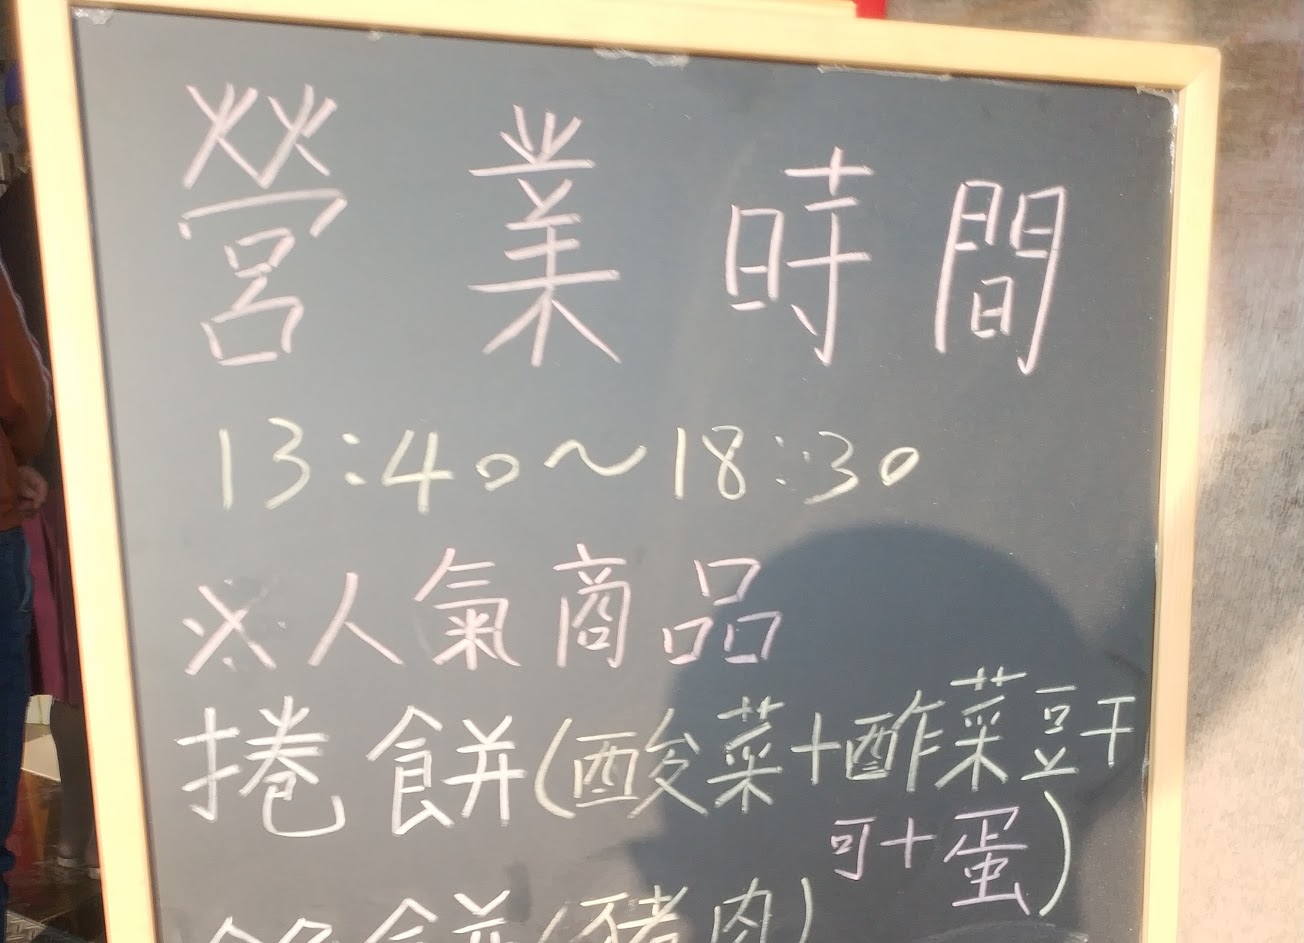 營業時間
13:40～18:30
※人氣商品
捲餅(酸菜+酢菜豆干
可+蛋)
餅(豬肉)